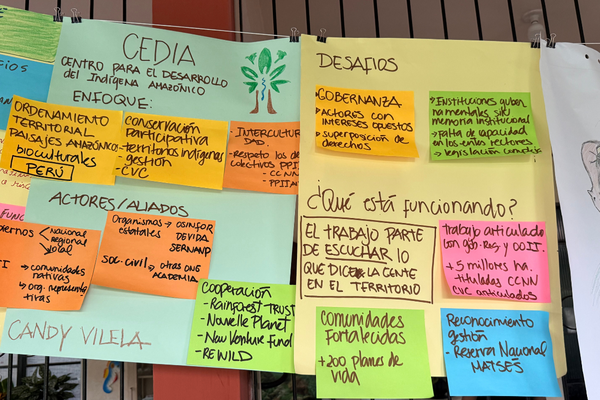 CEDIA
CENTRO PARA EL DESARROLLO
del Indígena AMAZÓNICO
ENFOQUE:
ORDENAMIENTO
TERRITORIAL
PAISAJES AMAZÓNIC
BIOCULTURALES
PERÚ
conservación
Participativa
- territorios indígenas
- gestión
- CVC
- INTERCULTUR
DAD.
- respeto los de
colectivos PPII
- CCNN
- PPIIA
ACTORES/ALIADOS
iernos
Nacional
regional
local
→ comunidades
nativas
→ org. representa
tivas
Organismos → OSINFOR
estatales DEVIDA
SERNANP
SOC. CIVIL → otras ONG
ACADEMIA
Cooperación
- Rainforest TRUST
- Nouvelle Planet
- New Venture Fund
- REWILD
CANDY VILELA
DESAFIOS
GOBERNANZA
→ ACTORES CON
INTERESES OPUESTOS
→ superposición de
derechos
→ Instituciones guber
namentales sin
memoria institucional
→ falta de capacidad
en los entes rectores
→ legislación
¿Qué está funcionando?
EL TRABAJO PARTE
DE ESCUCHAR LO
QUE DICE LA GENTE
EN EL TERRITORIO
trabajo articulado
con gob. Reg y OOII.
+ 5 millones ha.
tituladas CCNN
CVC articulados
Comunidades
Fortalecidas
+200 planes de
vida
Reconocimiento
gestión
- Reserva Nacional
MATSÉS